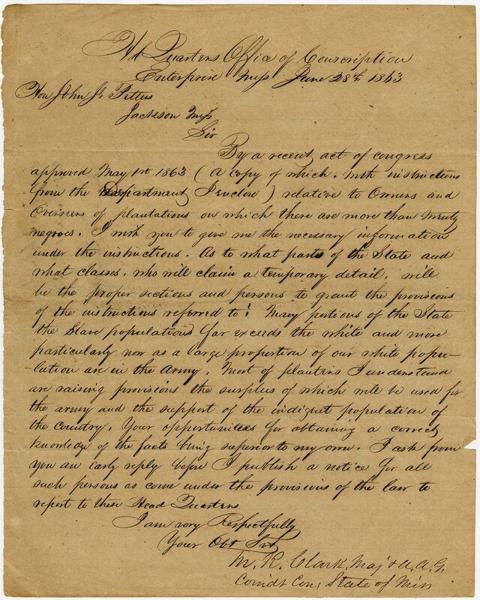 Hd Quarters Office of Conscription
Enterprise Miss June 28th 1863
Hon John J. Pettus
Jackson Miss
Sir
By a recent act of congress
approved May 1st 1863 (a copy of which. with instructions
from the Department I enclose) relative to Owners and
Overseers of plantations on which there are more than twenty
negroes. I wish you to give me the necessary information
under the instructions. As to what parts of the State and
what classes. who will claim a temporary detail. will
be the proper sections and persons to grant the provisions
of the instructions referred to: Many portions of the State
the Slave population far exceeds the white and more
particularly now as a large proportion of our white popu-
-lation are in the Army. Most of planters I understand
are raising provisions the surplus of which will be used for
the army and the support of the indigent population of
the Country. Your opportunities for obtaining a correct
knowledge of the facts being superior to my own. I ask from
you an early reply before I publish a notice for all
such persons as come under the provisions of the law to
report to these Head Quarters
I am very Respectfully
Your Obt Svt
M. R. Clark, Maj & A. A. G.
Comdt Con, State of Miss